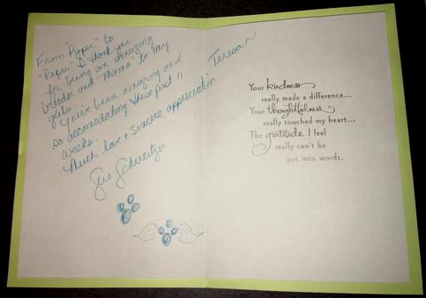 Teresa ~
From "Pooper" to
"Piper" I thank you
for being an amazing
breeder and "Mama" to my
girls.
You've been amazing and
so accomodating these past 11
weeks.
Much love & sincere appreciation
Sue
Your kindness
really made a difference...
Your thoughtfulness
really touched my heart...
The gratitude I feel
really can't be
put into words.